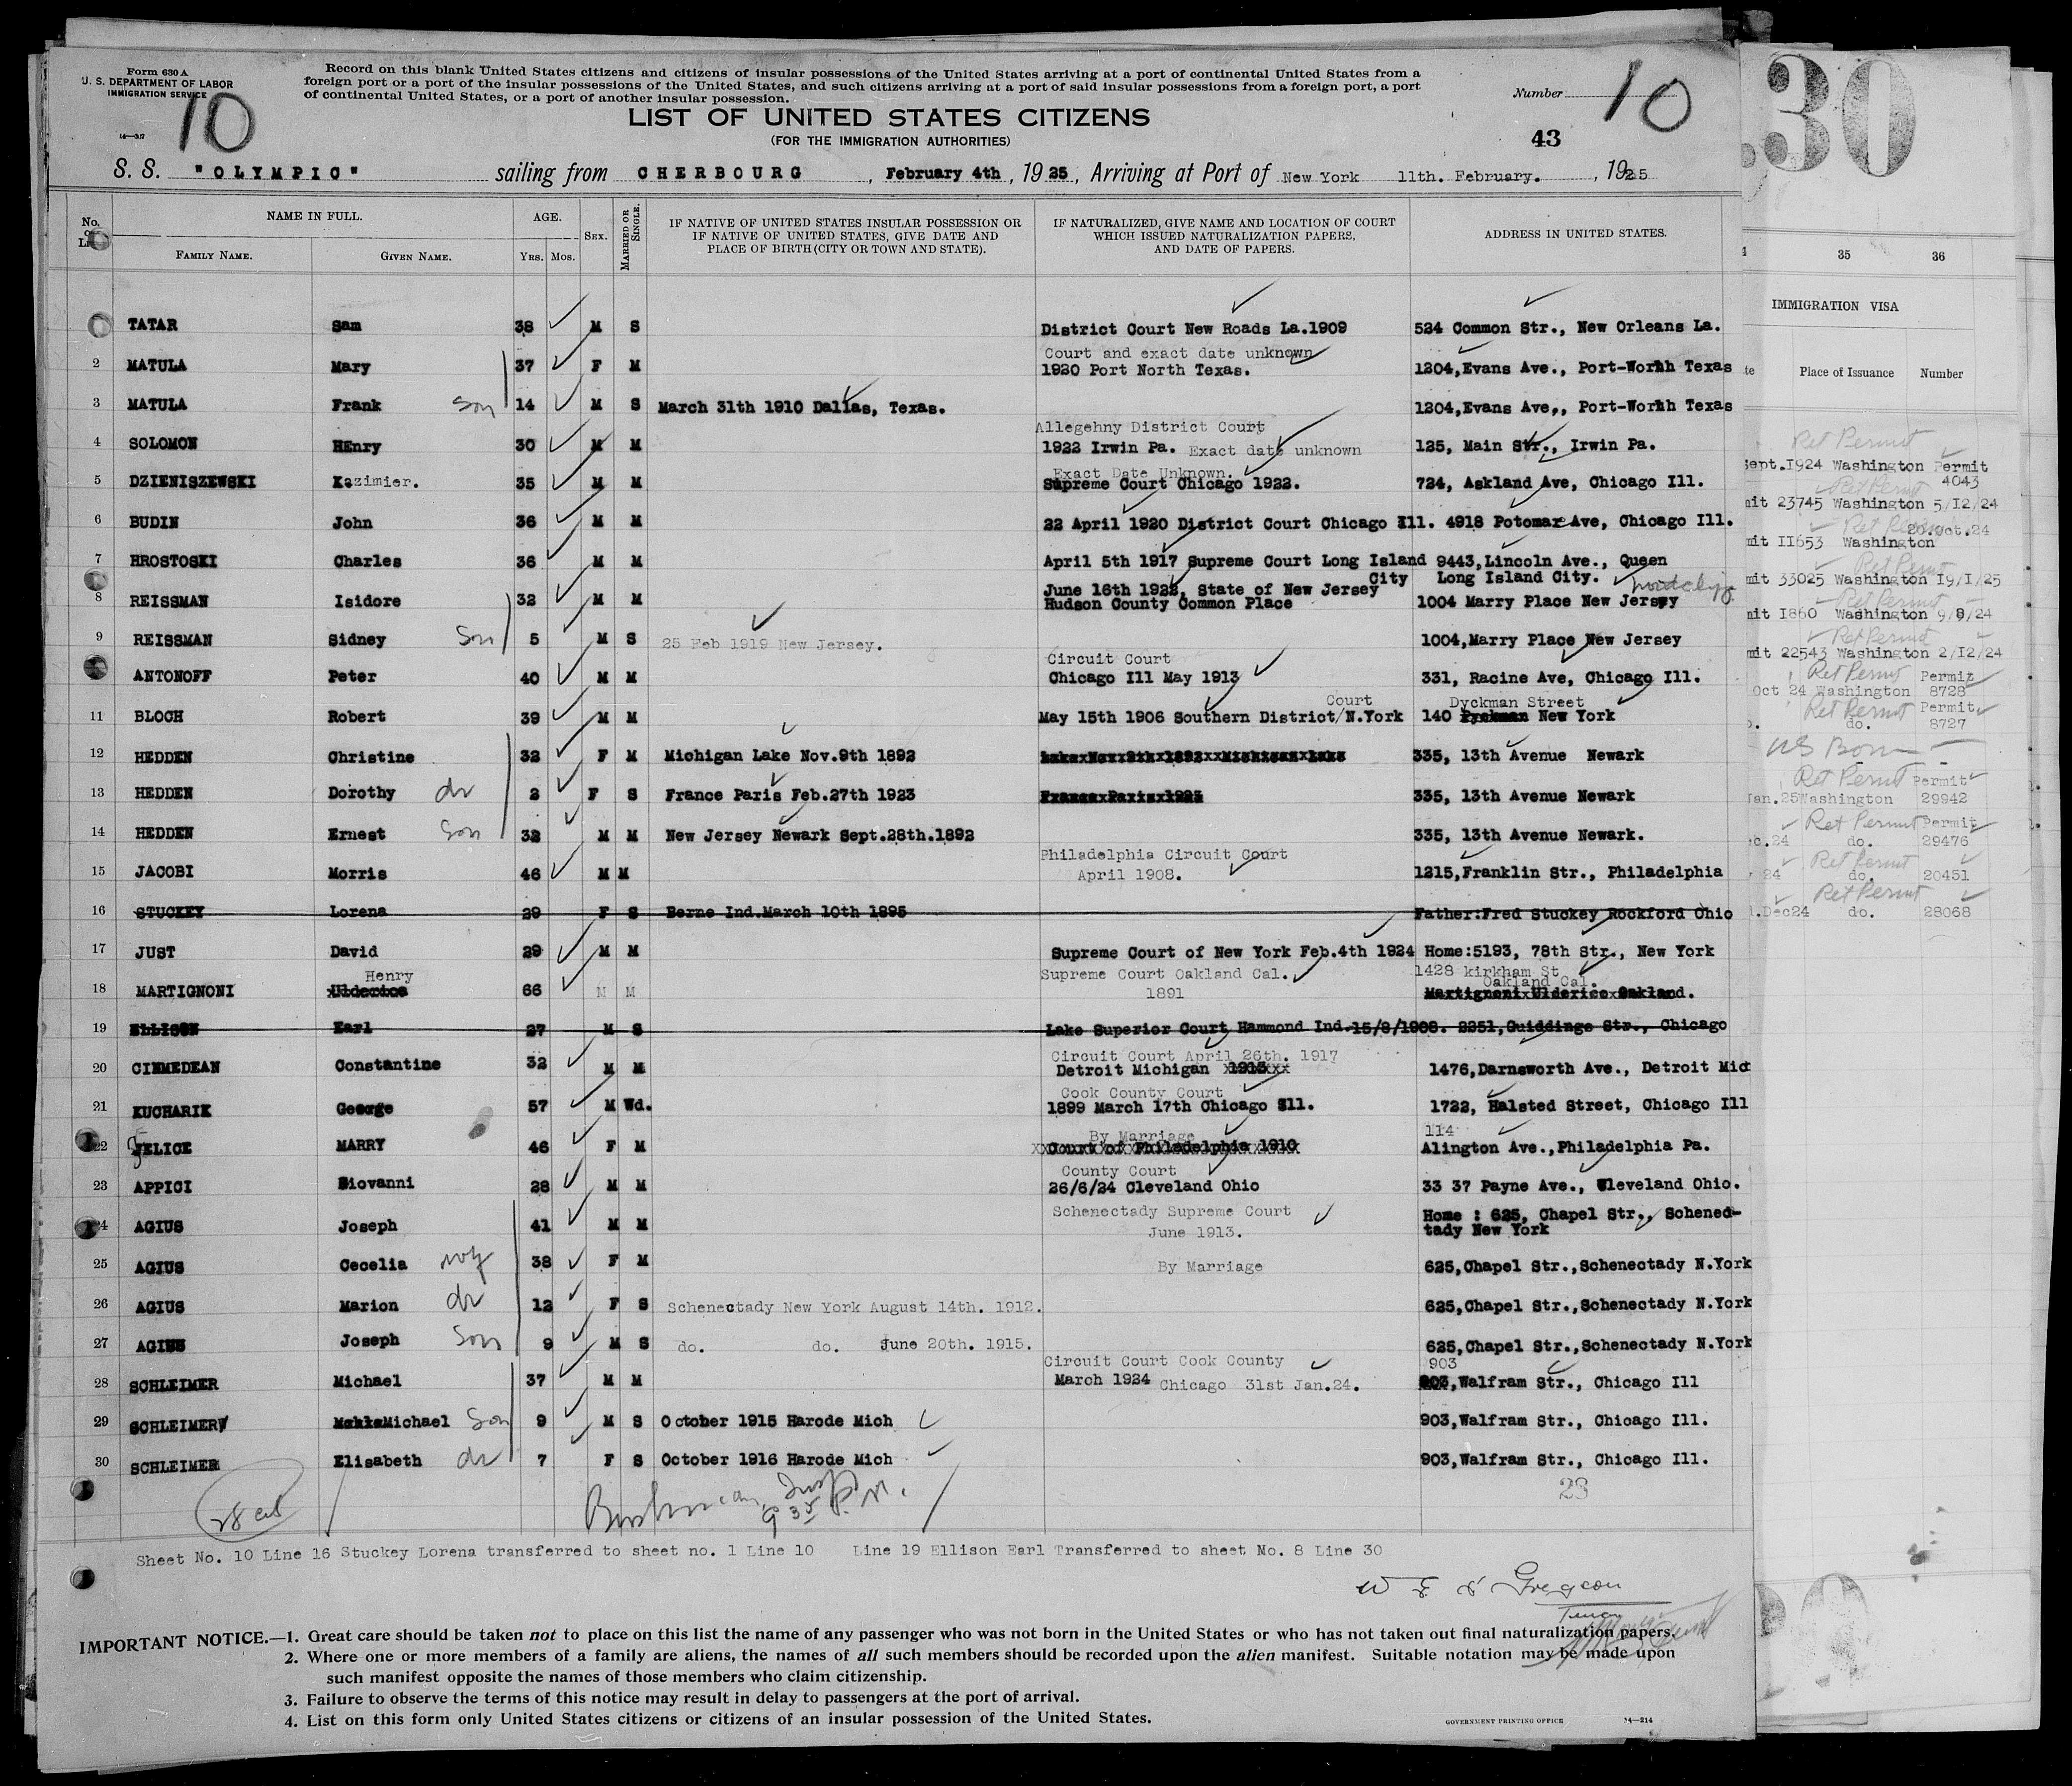 Form 630 A
U. S. DEPARTMENT OF LABOR
IMMIGRATION SERVICE
14—317
10
Record on this blank United States citizens and citizens of insular possessions of the United States arriving at a port of continental United States from a
foreign port or a port of the insular possessions of the United States, and such citizens arriving at a port of said insular possessions from a foreign port, a port
of continental United States, or a port of another insular possession.
Number 10
LIST OF UNITED STATES CITIZENS
(FOR THE IMMIGRATION AUTHORITIES)
43
S. S. "OLYMPIC" sailing from CHERBOURG, February 4th, 1925, Arriving at Port of New York 11th. February., 1925
No. on NAME IN FULL. AGE. SEX. MARRIED OR SINGLE. IF NATIVE OF UNITED STATES INSULAR POSSESSION OR IF NATIVE OF UNITED STATES, GIVE DATE AND PLACE OF BIRTH (CITY OR TOWN AND STATE). IF NATURALIZED, GIVE NAME AND LOCATION OF COURT WHICH ISSUED NATURALIZATION PAPERS, AND DATE OF PAPERS. ADDRESS IN UNITED STATES.
FAMILY NAME. GIVEN NAME. YRS. MOS.
TATAR Sam 38 M S District Court New Roads La.1909 524 Common Str., New Orleans La.
Court and exact date unknown
2 MATULA Mary 37 F M 1920 Port North Texas. 1204,Evans Ave., Port-Worth Texas
3 MATULA Frank son 14 M S March 31th 1910 Dallas, Texas. 1204,Evans Ave,, Port-Worth Texas
Allegehny District Court
4 SOLOMON HEnry 30 M M 1922 Irwin Pa. Exact date unknown 125, Main Str., Irwin Pa.
Exact Date Unknown.
5 DZIENISZEWSKI Kazimier. 35 M M Supreme Court Chicago 1922. 724, Askland Ave, Chicago Ill.
6 BUDIN John 36 M M 22 April 1920 District Court Chicago Ill. 4918 Potomac Ave, Chicago Ill.
7 HROSTOSKI Charles 36 M M April 5th 1917 Supreme Court Long Island City 9443,Lincoln Ave., Queen
Long Island City.
June 16th 1922, State of New Jersey
8 REISSMAN Isidore 32 M M Hudson County Common Place 1004 Marry Place New Jersey
9 REISSMAN Sidney Son 5 M S 25 Feb 1919 New Jersey. 1004,Marry Place New Jersey
Circuit Court
ANTONOFF Peter 40 M M Chicago Ill May 1913 331, Racine Ave, Chicago Ill.
Court Dyckman Street
11 BLOCH Robert 39 M M May 15th 1906 Southern District/N.York 140 Dyckman New York
12 HEDDEN Christine 32 F M Michigan Lake Nov.9th 1892 335, 13th Avenue Newark
13 HEDDEN Dorothy dr 2 F S France Paris Feb.27th 1923 335, 13th Avenue Newark
14 HEDDEN Ernest Son 32 M M New Jersey Newark Sept.28th.1892 335, 13th Avenue Newark.
Philadelphia Circuit Court
15 JACOBI Morris 46 M M April 1908. 1215,Franklin Str., Philadelphia
16 STUCKEY Lorena 29 F S Berne Ind.March 10th 1895 Father:Fred Stuckey Rockford Ohio
17 JUST David 29 M M Supreme Court of New York Feb.4th 1924 Home:5193, 78th Str., New York
Henry Supreme Court Oakland Cal. 1428 kirkham St
Oakland Cal.
18 MARTIGNONI Ulderico 66 M M 1891 Martignoni Ulderico Oakland.
19 ELLISON Earl 27 M S Lake Superior Court Hammond Ind.15/8/1908. 2251,Guiddings Str., Chicago
Circuit Court April 26th. 1917
20 CINMEDEAN Constantine 32 M M Detroit Michigan 1915 1476,Darnsworth Ave., Detroit Mic
Cook County Court
21 KUCHARIK George 57 M Wd. 1899 March 17th Chicago Ill. 1722, Halsted Street, Chicago Ill
By Marriage 114
22 FELICE MARRY 46 F M Court of Philadelphia 1910 Alington Ave.,Philadelphia Pa.
County Court
23 APPICI Giovanni 28 M M 26/6/24 Cleveland Ohio 33 37 Payne Ave., Cleveland Ohio.
Schenectady Supreme Court Home : 625, Chapel Str., Schened-
24 AGIUS Joseph 41 M M June 1913. tady New York
25 AGIUS Cecelia wf 38 F M By Marriage 625,Chapel Str.,Schenectady N.York
26 AGIUS Marion dr 12 F S Schenectady New York August 14th. 1912. 625,Chapel Str.,Schenectady N.York
27 AGIUS Joseph Son 9 M S do. do. June 20th. 1915. 625,Chapel Str.,Schenectady N.York
Circuit Court Cook County 903
28 SCHLEIMER Michael 37 M M March 1924 Chicago 31st Jan.24. 903,Walfram Str., Chicago Ill
29 SCHLEIMER Michael Son 9 M S October 1915 Harode Mich 903,Walfram Str., Chicago Ill.
30 SCHLEIMER Elisabeth dr 7 F S October 1916 Harode Mich 903,Walfram Str., Chicago Ill.
28
Insp
9 35 P.M.
Sheet No. 10 Line 16 Stuckey Lorena transferred to sheet no. 1 Line 10 Line 19 Ellison Earl Transferred to sheet No. 8 Line 30
IMPORTANT NOTICE.—1. Great care should be taken not to place on this list the name of any passenger who was not born in the United States or who has not taken out final naturalization papers.
2. Where one or more members of a family are aliens, the names of all such members should be recorded upon the alien manifest. Suitable notation may be made upon
such manifest opposite the names of those members who claim citizenship.
3. Failure to observe the terms of this notice may result in delay to passengers at the port of arrival.
4. List on this form only United States citizens or citizens of an insular possession of the United States.
GOVERNMENT PRINTING OFFICE 14—214
30
35 36
IMMIGRATION VISA
Place of Issuance Number
Ret Permit
Sept.1924 Washington Permit
4043
Ret Permit
mit 23745 Washington 5/12/24
Ret Permit
20.Oct.24
mit 11653 Washington
Ret Permit
mit 33025 Washington 19/1/25
Ret Permit
mit 1860 Washington 9/9/24
Ret Permit
mit 22543 Washington 2/12/24
Ret Permit Permit
Oct 24 Washington 8728
Ret Permit Permit
do. 8727
US Born
Ret Permit Permit
Jan.25 Washington 29942
Ret Permit Permit
c.24 do. 29476
Ret Permit
24 do. 20451
Ret Permit
.Dec24 do. 28068